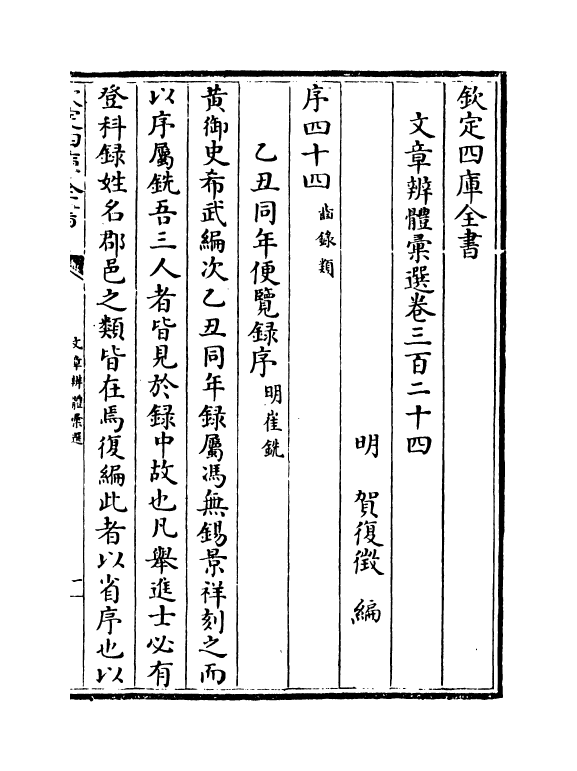 欽定四庫全書
文章辨體彙選卷三百二十四
明 賀復徵 編
序四十四 齒錄類
乙丑同年便覽録序 明崔銑
黃御史希武編次乙丑同年録屬馮無錫景祥刻之而
以序屬銑吾三人者皆見於録中故也凡舉進士必有
登科録姓名郡邑之類皆在焉復編此者以省序也以
文章辨體彙選